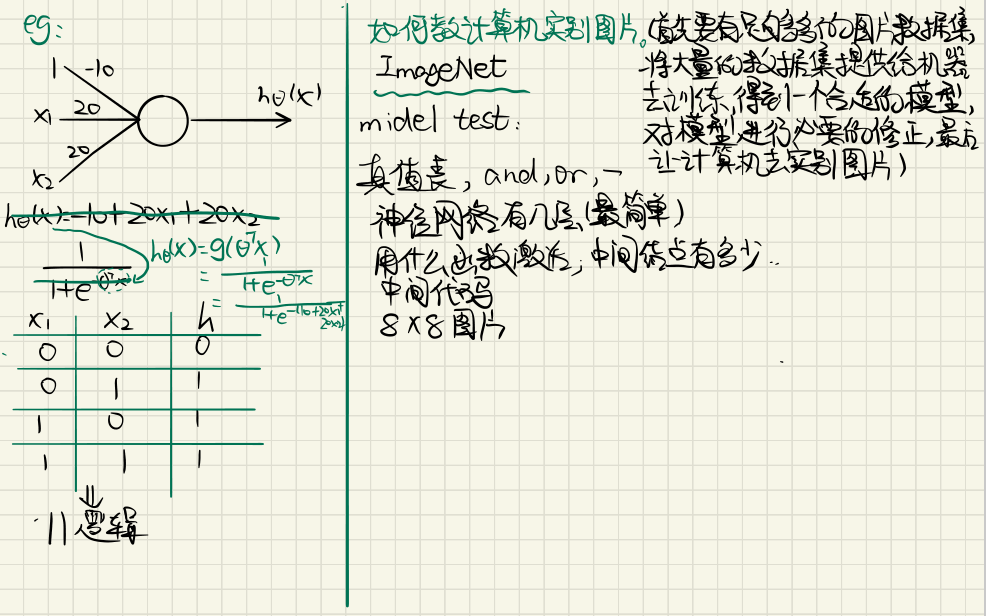 eg:
1 -10
x1 20
x2 20
hθ(x)
hθ(x)=-10+20x1+20x2
1
1+e
hθ(x)=g(θᵀx)
= 1
1+e-θᵀx
= 1
1+e-(-10+20x1+
20x2)
x1 x2 h
0 0 0
0 1 1
1 0 1
1 1 1
⇓
||逻辑
如何教计算机实别图片。
ImageNet
(首先要有足够多的图片数据集,
将大量的数据集提供给机器
去训练,得到一个合适的模型,
对模型进行必要的修正,最后
让计算机去实别图片)
midel test:
真值表, and, or, ¬
神经网络有几层(最简单)
用什么函数激活,中间结点有多少..
中间代码
8×8图片